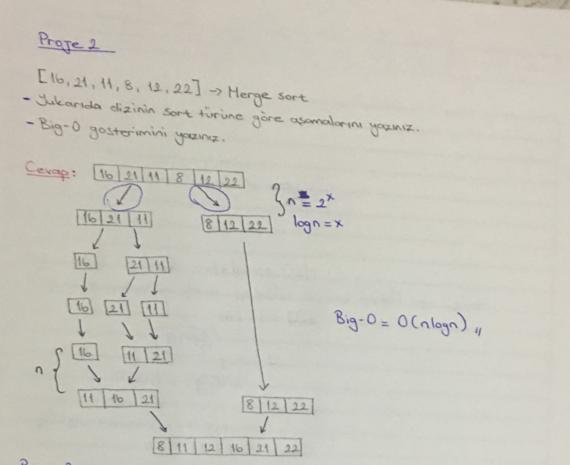 Proje 2
[16, 21, 11, 8, 12, 22] → Merge sort
- Yukarıda dizinin sort türüne göre aşamalarını yazınız.
- Big-O gösterimini yazınız.
Cevap: 16 21 11 8 12 22
n = 2^x
logn = x
16 21 11 8 12 22
16 21 11
16 21 11
Big-O = O(nlogn) //
n 16 11 21
11 16 21 8 12 22
8 11 12 16 21 22